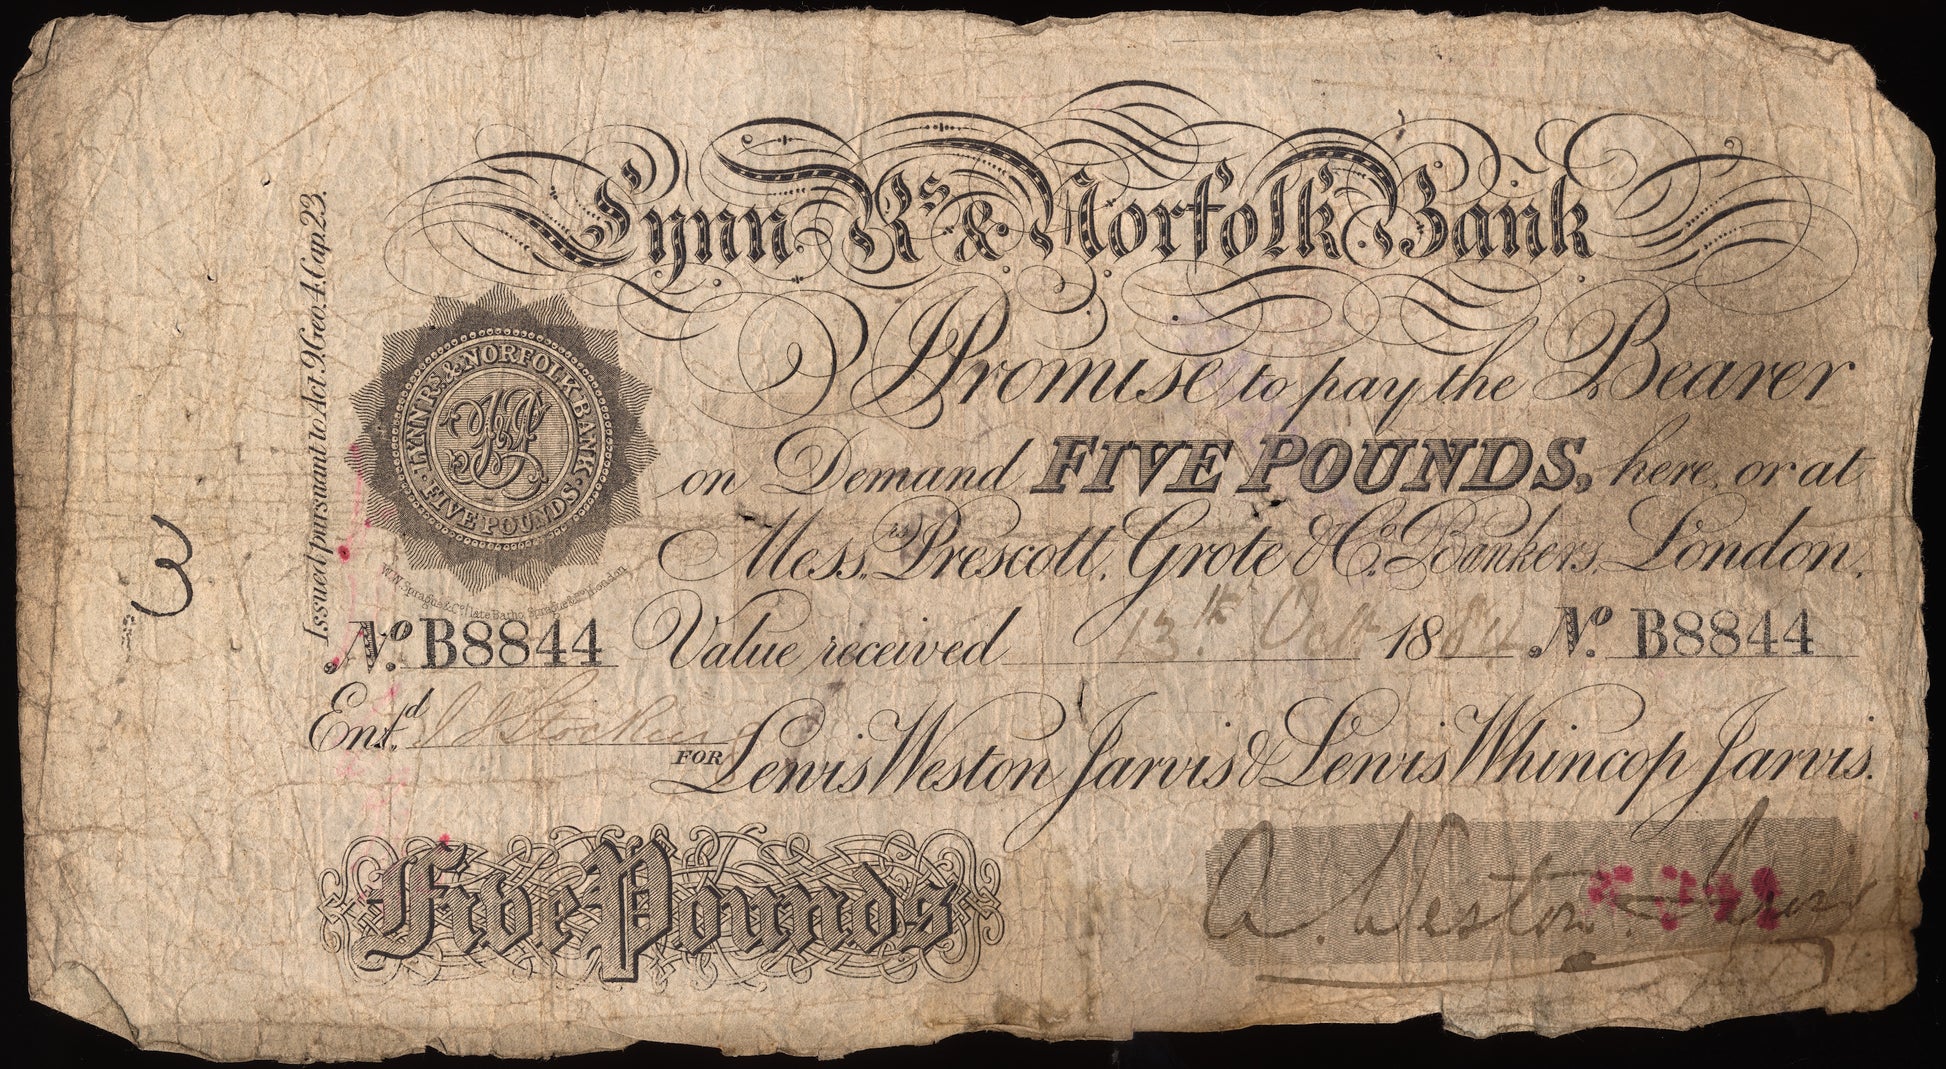 Lynn Rs & Norfolk Bank
Issued pursuant to Act 9, Geo. 4, Cap. 23.
I Promise to pay the Bearer
on Demand FIVE POUNDS, here, or at
Messrs Prescott, Grote & Co. Bankers, London.
LYNN RS. & NORFOLK BANK.
FIVE POUNDS.
3
No. B8844 Value received 13th Oct 1884 No. B8844
Entd.
FOR Lewis Weston Jarvis & Lewis Whincop Jarvis.
Five Pounds
A. Weston Jarvis